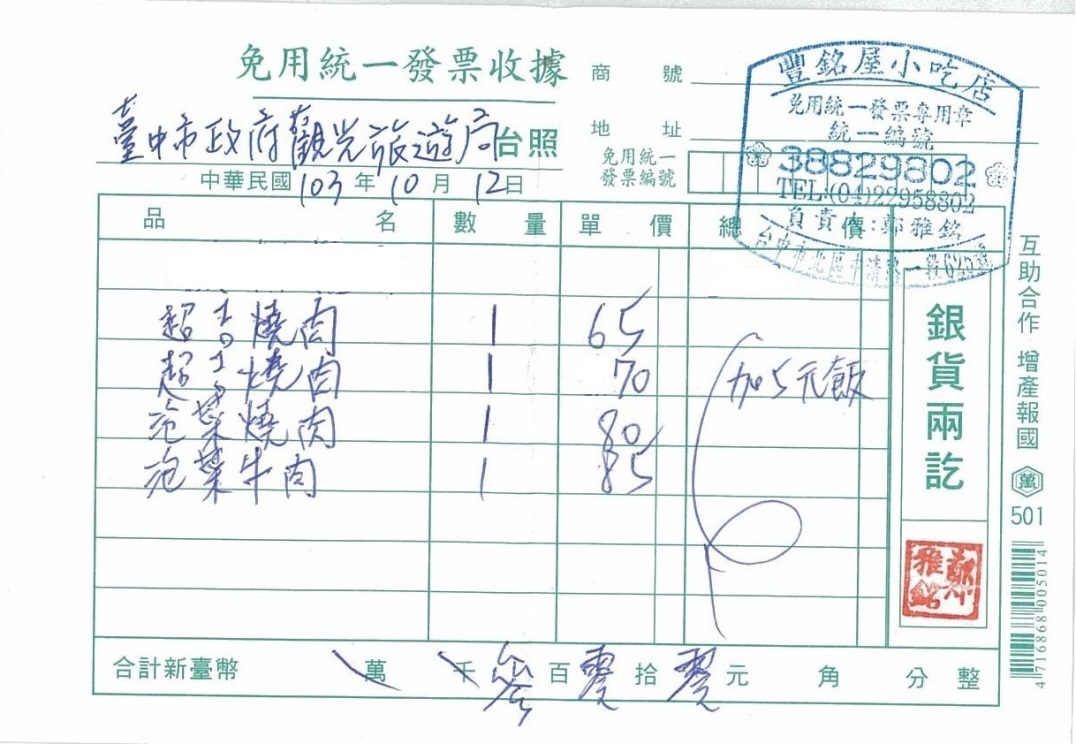 免用統一發票收據
臺中市政府觀光旅遊局台照
中華民國103年10月12日
商號
地址
免用統一
發票編號
豐銘屋小吃店
免用統一發票專用章
統一編號
38829802
TEL:(04)22958802
負責人:鄭雅銘
台中市北區中清路一段
品名 數量 單價 總價
燒肉 1 65
燒肉 1 70 加5元飯
泡菜燒肉 1 80
泡菜牛肉 1 85
銀貨兩訖
鄭雅銘
合計新臺幣 萬 千 參百零拾零元 角 分整
互助合作 增產報國
萬
501
4 716868 005014